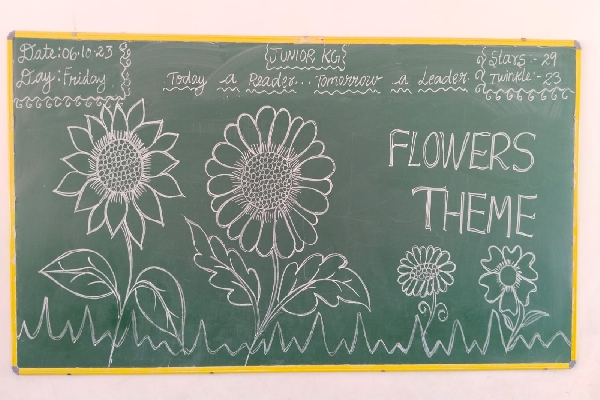 Date:06.10.23
Day:Friday
JUNIOR KG
Today a Reader... Tomorrow a Leader.
Stars:- 29
Twinkle:- 23
FLOWERS
THEME